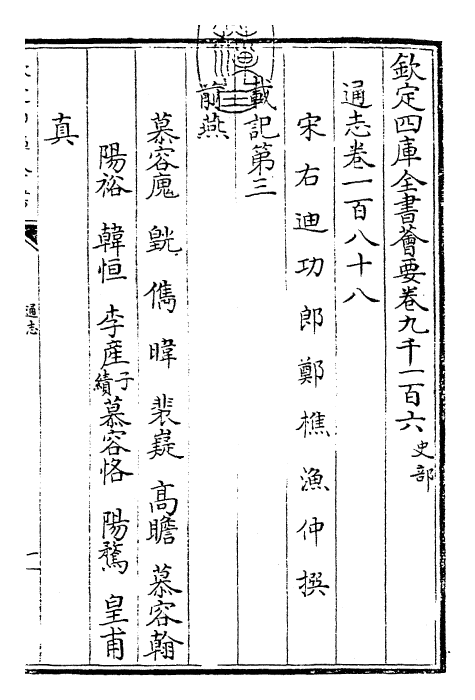 欽定四庫全書薈要卷九千一百六 史部
通志卷一百八十八
宋右迪功郎鄭樵漁仲撰
載記第三
前燕
慕容廆 皝 儁 暐 裴嶷 高瞻 慕容翰
陽裕 韓恒 李產 子績 慕容恪 陽騖 皇甫
真
通志
一